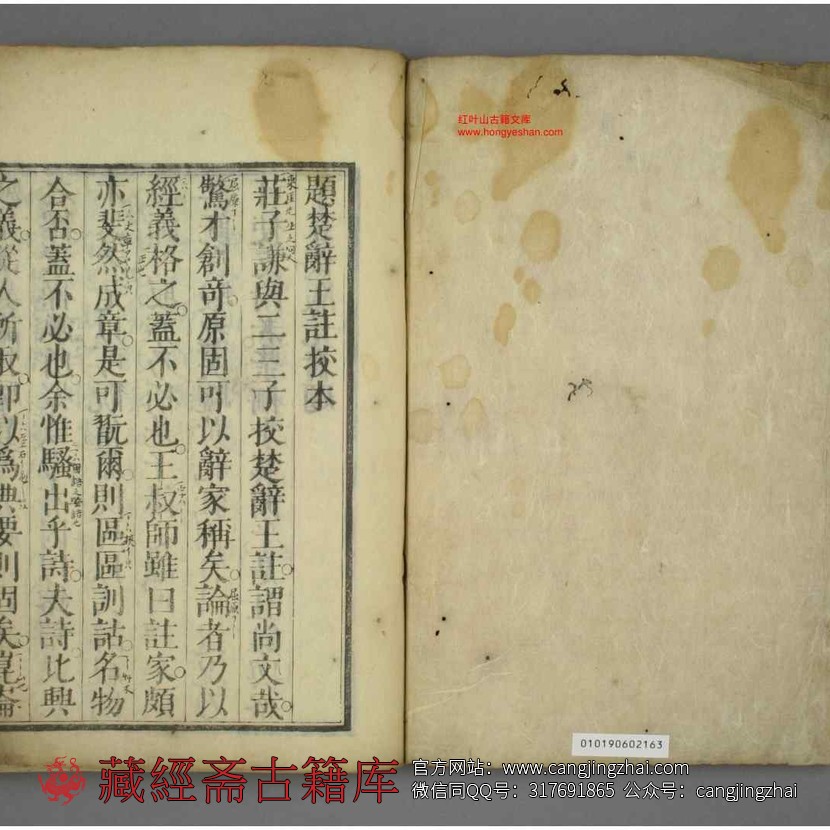 題楚辭王註挍本
莊子謙與二三子挍楚辭王註謂尚文哉
驚才創奇原固可以辭家稱矣論者乃以
經義格之蓋不必也王叔師雖曰註家頗
亦斐然成章是可翫爾則區區訓詁名物
合否蓋不必也余惟騷出乎詩夫詩比興
之義從人所取即以爲典要則固矣崑崙
红叶山古籍文库
www.hongyeshan.com
010190602163
藏經斋古籍库
官方网站：www.cangjingzhai.com
微信同QQ号：317691865 公众号：cangjingzhai